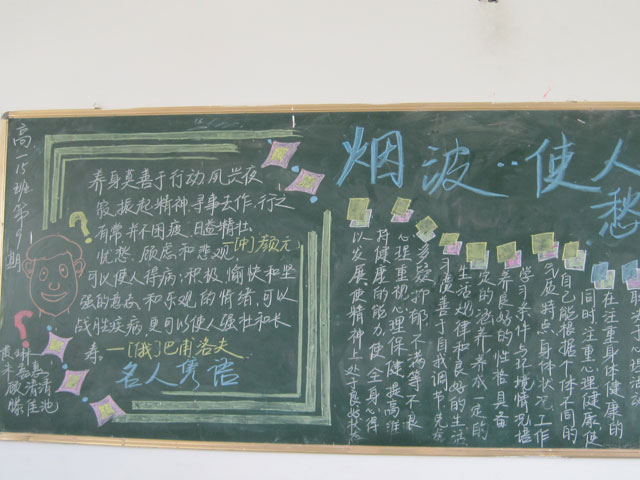 高一15班第9期
养身莫善于行动,夙兴夜
寐,振起精神,寻事去作,行之
有常,并不困疲,日益精壮.
—[中]颜元
忧愁、顾虑和悲观,
可以使人得病;积极、愉快和坚
强的意志和乐观的情绪,可以
战胜疾病,更可以使人强壮和长
寿.—[俄]巴甫洛夫
名人隽语
烟波··使人
愁
在注重身体健康的
同时注重心理健康使
自己能根据个体不同的
气质特点、身体状况、工作
学习条件与环境情况培
养良好的性格具备
定的涵养养成一定的
生活规律和良好的生活
习惯善于自我调节免
多疑抑郁不满等不良
心理重视心理保健提高维
持健康的能力使全身心得
以发展使精神上处于良好状态